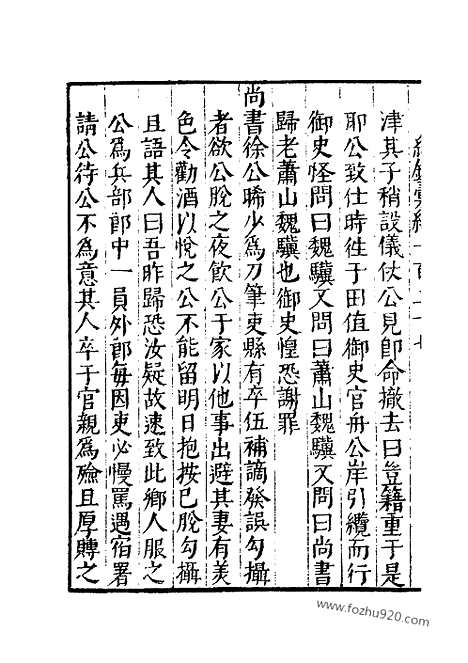 津其子稍設儀仗公見卽命撤去曰豈籍重于是
耶公致仕時徃于田值御史官舟公岸引纜而行
御史怪問曰魏驥又問曰蕭山魏驥又問曰尚書
歸老蕭山魏驥也御史惶恐謝罪
尚書徐公晞少爲刀筆吏縣有卒伍補謫發誤勾攝
者欲公脫之夜飲公于家以他事出避其妻有美
色令勸酒以悅之公不能留明日抱按已脫勾攝
且語其人曰吾昨歸恐汝疑故速致此鄉人服之
公爲兵部郎中一員外郎每因吏必慢罵遇宿署
請公待公不爲意其人卒于官親爲殮且厚賻之
www.fozhu920.com